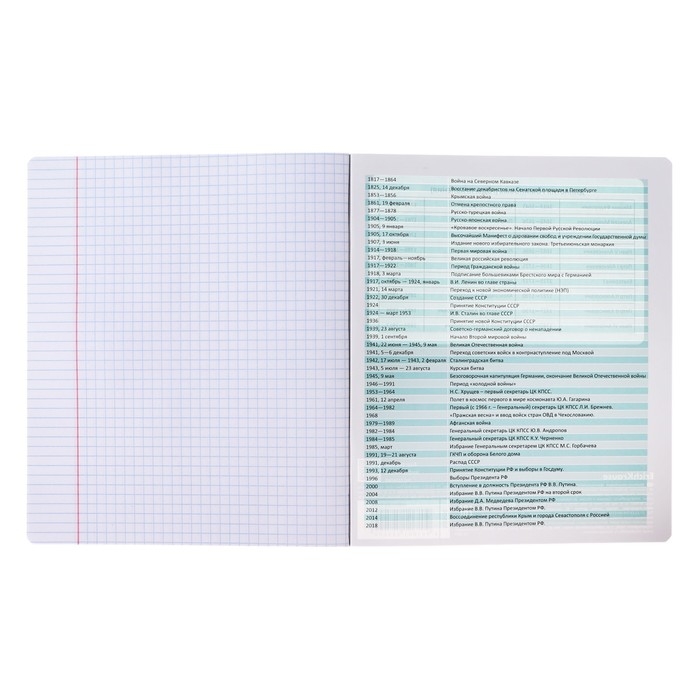 1817—1864 Война на Северном Кавказе
1825, 14 декабря Восстание декабристов на Сенатской площади в Петербурге
1853—1856 Крымская война
1861, 19 февраля Отмена крепостного права
1877—1878 Русско-турецкая война
1904—1905 Русско-японская война
1905, 9 января «Кровавое воскресенье». Начало Первой Русской Революции
1905, 17 октября Высочайший Манифест о даровании свобод и учреждении Государственной думы
1907, 3 июня Издание нового избирательного закона. Третьеиюньская монархия
1914—1918 Первая мировая война
1917, февраль – ноябрь Великая российская революция
1917—1922 Период Гражданской войны
1918, 3 марта Подписание большевиками Брестского мира с Германией
1917, октябрь — 1924, январь В.И. Ленин во главе страны
1921, 14 марта Переход к новой экономической политике (НЭП)
1922, 30 декабря Создание СССР
1924 Принятие Конституции СССР
1924 — март 1953 И.В. Сталин во главе СССР
1936 Принятие новой Конституции СССР
1939, 23 августа Советско-германский договор о ненападении
1939, 1 сентября Начало Второй мировой войны
1941, 22 июня — 1945, 9 мая Великая Отечественная война
1941, 5—6 декабря Переход советских войск в контрнаступление под Москвой
1942, 17 июля — 1943, 2 февраля Сталинградская битва
1943, 5 июля — 23 августа Курская битва
1945, 9 мая Безоговорочная капитуляция Германии, окончание Великой Отечественной войны
1946—1991 Период «холодной войны»
1953—1964 Н.С. Хрущев – первый секретарь ЦК КПСС.
1961, 12 апреля Полет в космос первого в мире космонавта Ю.А. Гагарина
1964—1982 Первый (с 1966 г. – Генеральный) секретарь ЦК КПСС Л.И. Брежнев.
1968 «Пражская весна» и ввод войск стран ОВД в Чехословакию
1979—1989 Афганская война
1982—1984 Генеральный секретарь ЦК КПСС Ю.В. Андропов
1984—1985 Генеральный секретарь ЦК КПСС К.У. Черненко
1985, март Избрание Генеральным секретарем ЦК КПСС М.С. Горбачева
1991, 19—21 августа ГКЧП и оборона Белого дома
1991, декабрь Распад СССР
1993, 12 декабря Принятие Конституции РФ и выборы в Госдуму.
1996 Выборы Президента РФ
2000 Вступление в должность Президента РФ В.В. Путина.
2004 Избрание В.В. Путина Президентом РФ на второй срок
2008 Избрание Д.А. Медведева Президентом РФ
2012 Избрание В.В. Путина Президентом РФ.
2014 Воссоединение республики Крым и города Севастополя с Россией
2018 Избрание В.В. Путина Президентом РФ.